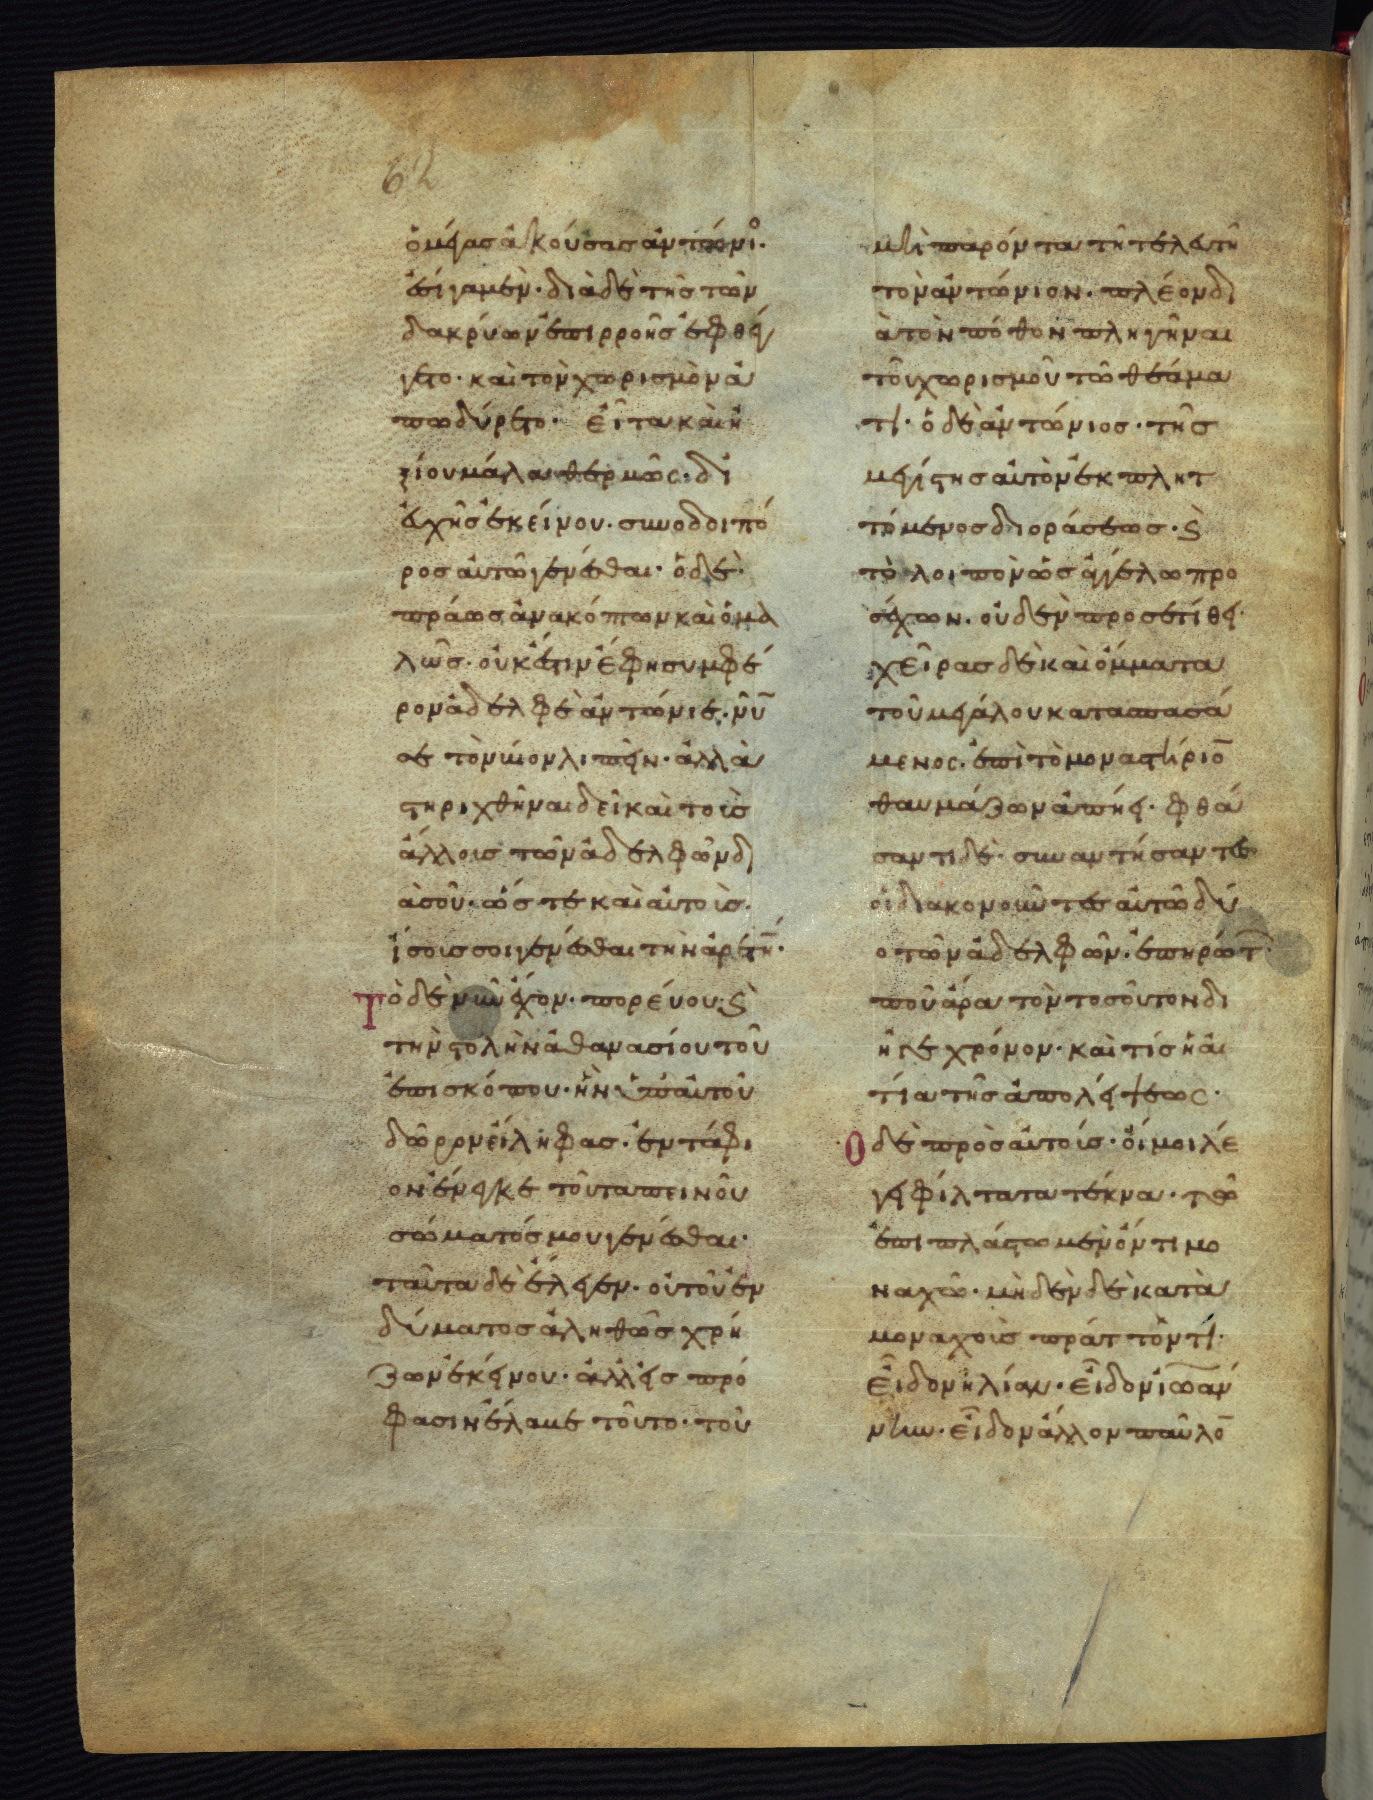 62
ὁ μέγας ἀκούσας ἀντώνιος·
ἐσίγα μὲν· διὰ δὲ τῆς τῶν
δακρύων ἐπιρροῆς ἐφθέγ
γετο· καὶ τὸν χωρισμὸν ἀ
πωδύρετο· εἶτα καὶ ἠ
ξίου μάλα θερμῶς· δι
εὐχῆς ἐκείνου· συνοδοιπό
ρος αὐτῶ γενέσθαι· ὁ δὲ
πράως ἀνακόπτων καὶ ὁμα
λῶς· οὐκ ἔστιν ἔφη συμφέ
ρον ἀδελφὲ ἀντώνιε· νῦν
σε τὸν βίον λιπεῖν· ἀλλὰ
στηριχθῆναι δεῖ καὶ τοῖς
ἄλλοις τῶν ἀδελφῶν δι
ὰ σοῦ· ὥστε καὶ αὐτοῖς
ἴσοις σοι γενέσθαι τὴν ἀρετήν·
Τὸ δὲ νῦν ἔχον· πορεύου καὶ
τὴν στολὴν ἀθανασίου τοῦ
ἐπισκόπου· ἣν ὑπ' αὐτοῦ
δῶρον εἴληφας· ἐντάφι
ον ἔνεγκε τοῦ ταπεινοῦ
σώματός μου γενέσθαι·
ταῦτα δὲ ἔλεγεν· οὐ τοῦ ἐν
δύματος ἀληθῶς χρή
ζων ἐκείνου· ἀλλ' εἰς πρό
φασιν ἔλαβε τοῦτο· τοῦ
μὴ παρόντα τῆ τελευτῆ
τὸν ἀντώνιον· πλέον δι
ὰ τὸν πόθον πληγῆναι
τοῦ χωρισμοῦ τῶ θεάμα
τι· ὁ δὲ ἀντώνιος· τῆς
μεγίστης αὐτὸν ἐκπλητ
τόμενος διοράσεως· καὶ
τὸ λοιπὸν ὡς ἀγγέλω προ
σέχων· οὐδὲν προσετίθει·
χεῖρας δὲ καὶ ὄμματα
τοῦ μεγάλου κατασπασά
μενος· ἐπὶ τὸ μοναστήριον
θαυμάζων ἀπήει· φθά
σαντι δὲ· συναντήσαντες
οἱ διακονοῦντες αὐτῶ δύ
ο τῶν ἀδελφῶν· ἐπηρώτων·
ποῦ ἄρα τὸν τοσοῦτον δι
ῆγε χρόνον· καὶ τίς ἡ αἰ
τία τῆς ἀπολείψεως·
Ὁ δὲ πρὸς αὐτοὺς· οἴμοι λέ
γει φίλτατα τέκνα· τῶ
ἐπιπλάστω μὲν ὄντι μο
ναχῶ· μηδὲν δὲ κατὰ
μοναχοὺς πράττοντι·
εἶδον ἠλίαν· εἶδον ἰωάν
νην· εἶδον ἄλλον παῦλον